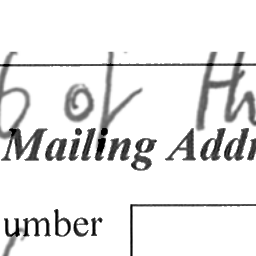 of
Mailing Addr
umber